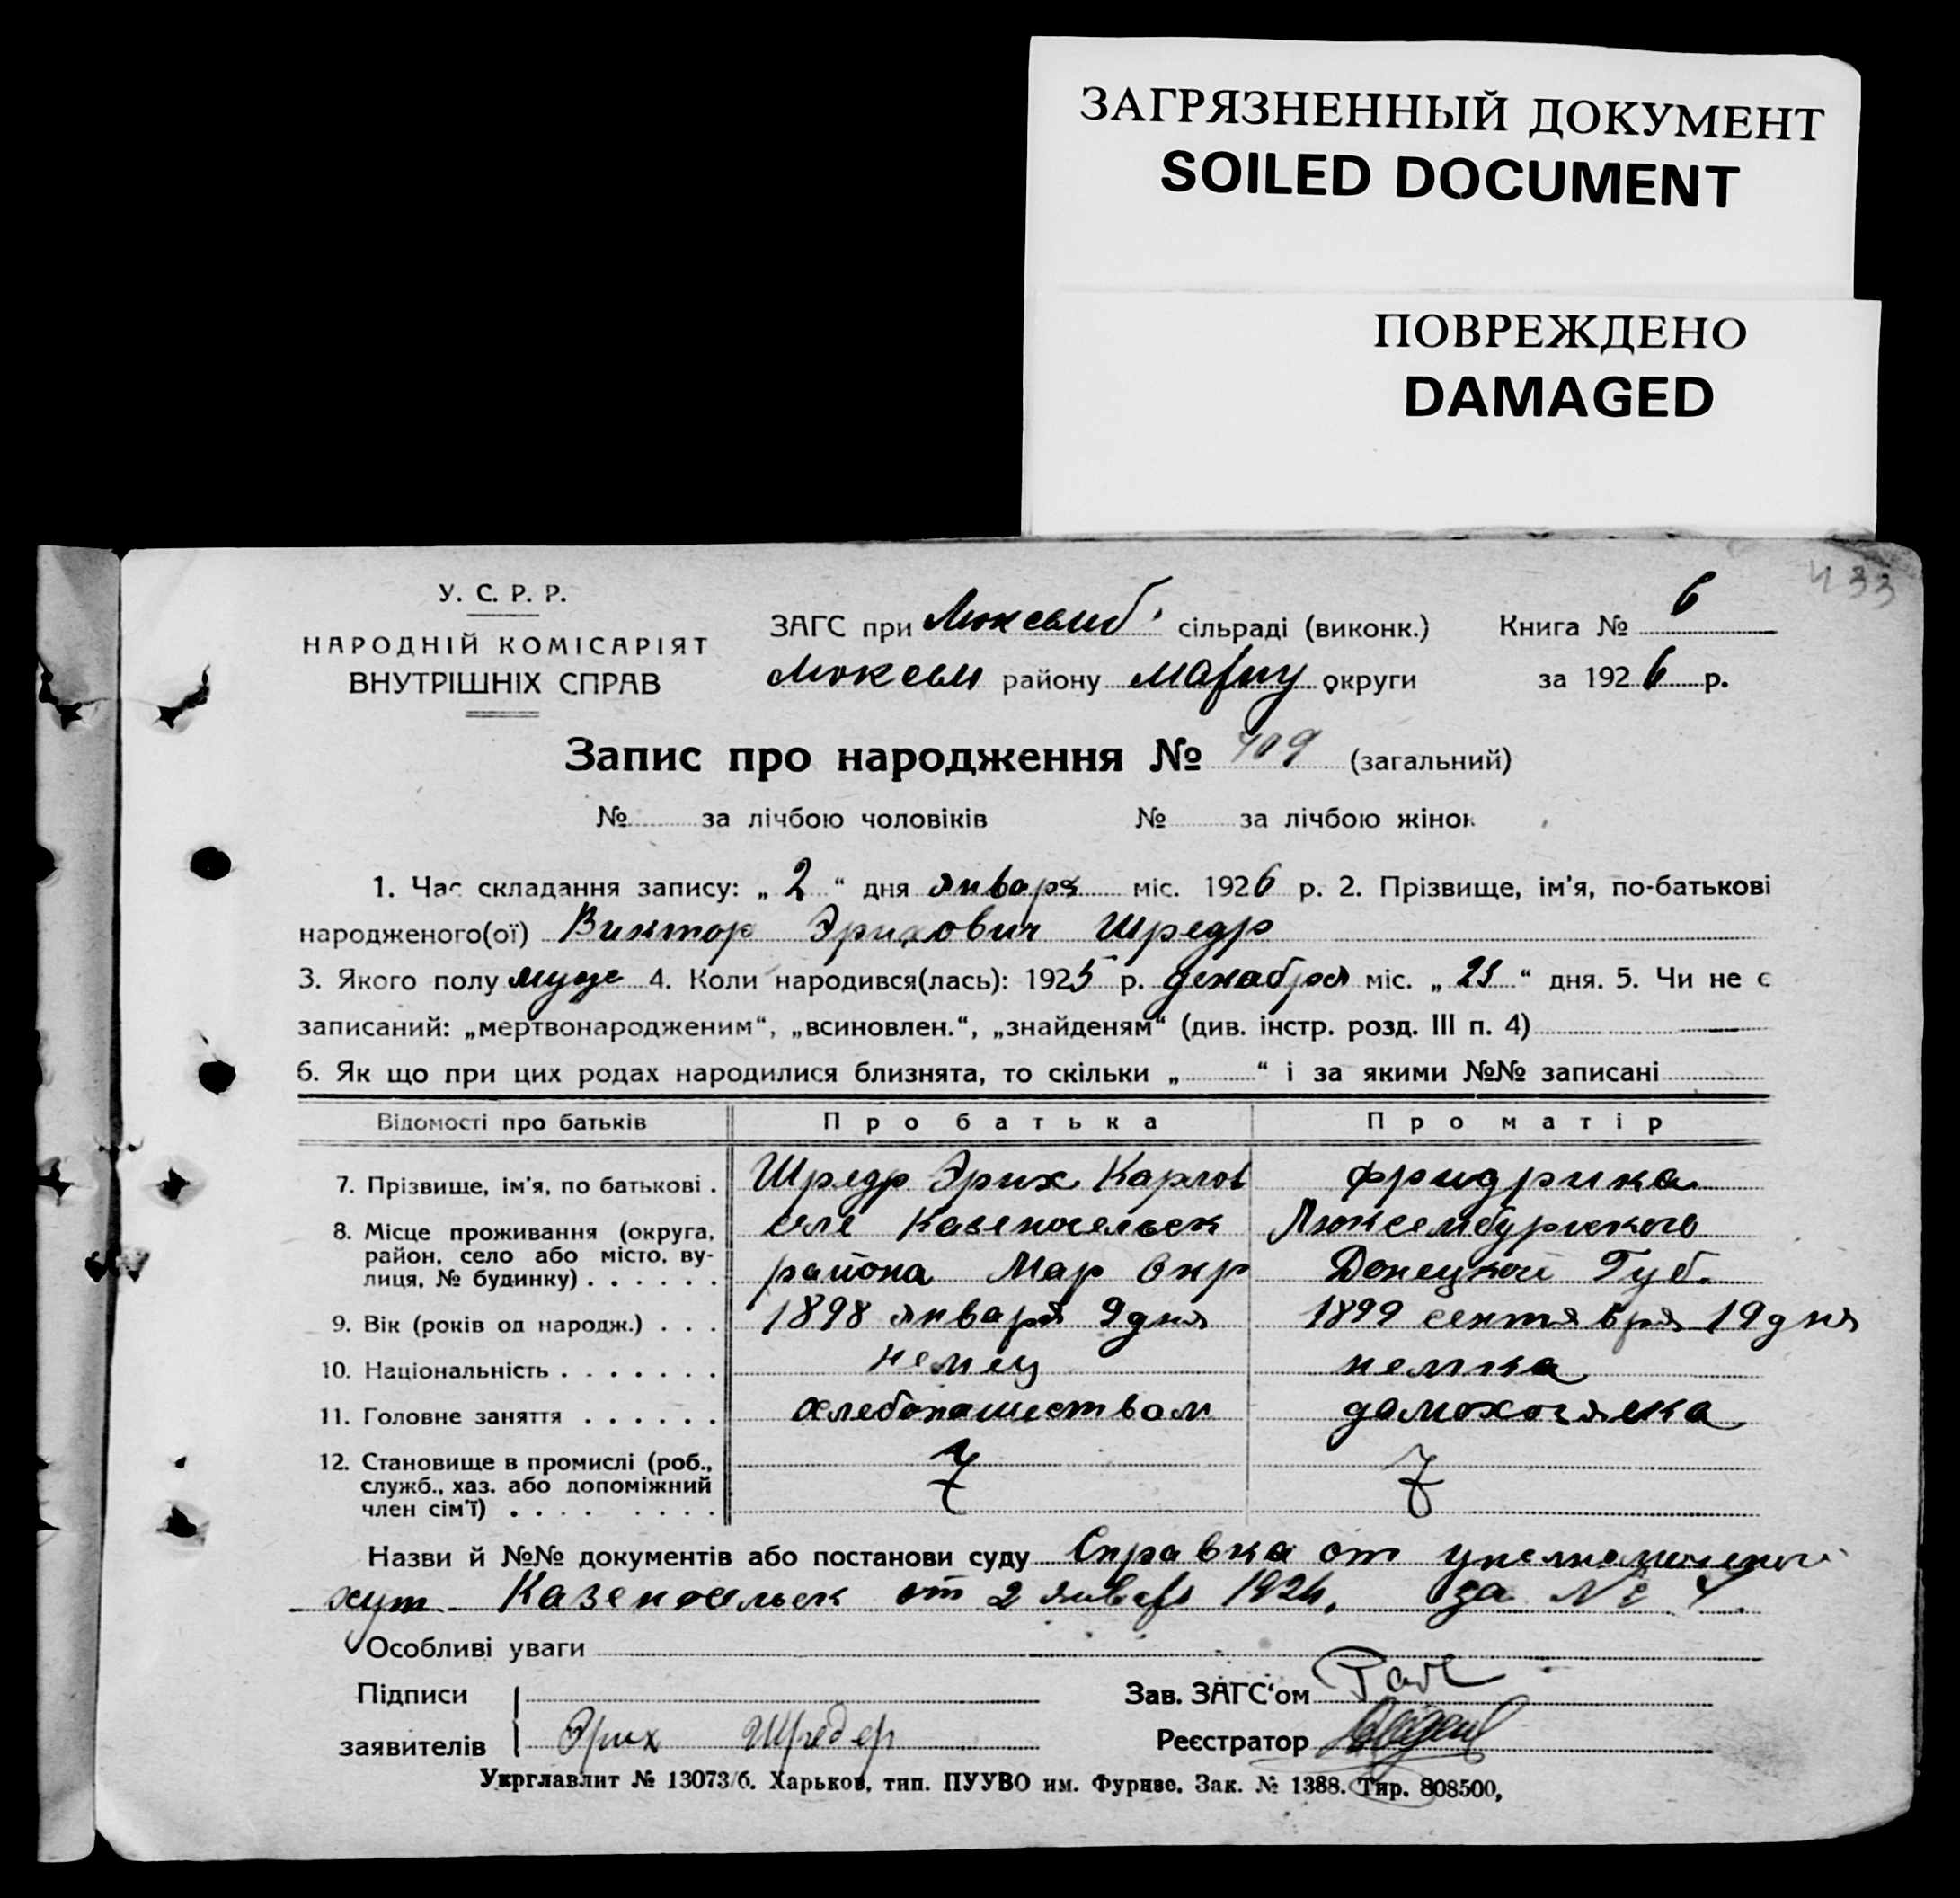 ЗАГРЯЗНЕННЫЙ ДОКУМЕНТ
SOILED DOCUMENT
ПОВРЕЖДЕНО
DAMAGED
433
У. С. Р. Р.
НАРОДНІЙ КОМІСАРІЯТ
ВНУТРІШНІХ СПРАВ
ЗАГС при Люксемб. сільраді (виконк.) Книга № 6
Люксем району Маріу округи за 1926 р.
Запис про народження № 709 (загальний)
№ за лічбою чоловіків № за лічбою жінок
1. Час складання запису: „ 2 “ дня января міс. 1926 р. 2. Прізвище, ім’я, по-батькові
народженого(ої) Виктор Эрихович Шредр
3. Якого полу муже 4. Коли народився(лась): 1925 р. декабря міс. „ 23 “ дня. 5. Чи не є
записаний: „мертвонародженим“, „всиновлен.“, „знайденям“ (див. інстр. розд. III п. 4)
6. Як що при цих родах народилися близнята, то скільки „ “ і за якими №№ записані
Відомості про батьків Про батька Про матір
7. Прізвище, ім’я, по батькові . Шредр Эрих Карлов Фридрика
8. Місце проживання (округа, селе Казеносельск Люксембургского
район, село або місто, ву-
лиця, № будинку) . . . . . . района Мар Окр Донецкой Губ.
9. Вік (років од народж.) . . . 1898 января 9 дня 1899 сентября 19 дня
10. Національність . . . . . . . немец немка
11. Головне заняття . . . . . . хлебопашеством домохозяека
12. Становище в промислі (роб.,
служб., хаз. або допоміжний
член сім’ї) . . . . . . . .
Назви й №№ документів або постанови суду Справка от уполномоченого
хут. Казеносельск от 2 января 192 за № 4.
Особливі уваги
Підписи Зав. ЗАГС‘ом
заявителів Эрих Шредер Реєстратор
Укрглавлит № 13073/б. Харьков, тип. ПУУВО им. Фрунзе. Зак. № 1388. Тир. 808500,